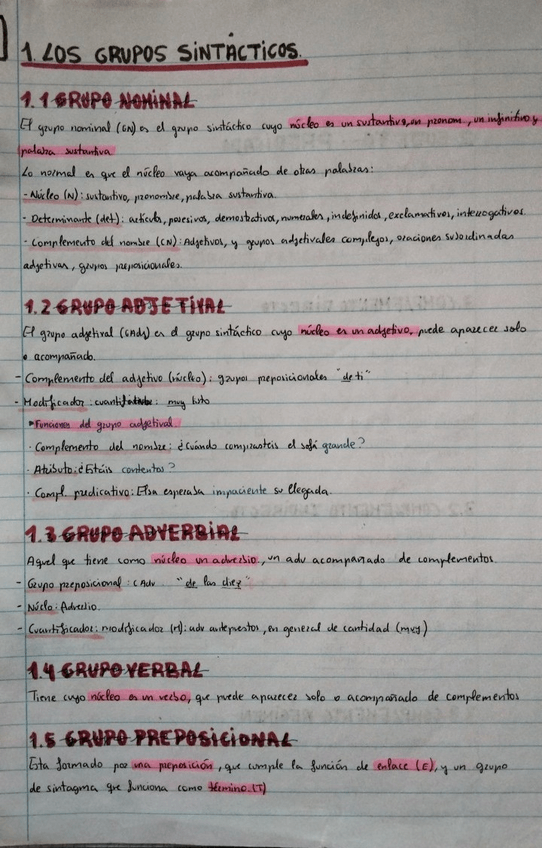 1. LOS GRUPOS SINTÁCTICOS.
1.1 GRUPO NOMINAL
El grupo nominal (GN) es el grupo sintáctico cuyo núcleo es un sustantivo, un pronom, un infinitivo y
palabra sustantiva
Lo normal es que el núcleo vaya acompañado de otras palabras:
- Núcleo (N): sustantivo, pronombre, palabra sustantiva.
- Determinante (det): artículo, posesivos, demostrativos, numerales, indefinidos, exclamativos, interrogativos
- Complemento del nombre (CN): Adjetivos, y grupos adjetivales complejos, oraciones subordinadas
adjetivas, grupos preposicionales.
1.2 GRUPO ADJETIVAL
El grupo adjetival (GAdj) es el grupo sintáctico cuyo núcleo es un adjetivo, puede aparecer solo
o acompañado.
- Complemento del adjetivo (núcleo): grupos preposicionales "de ti"
- Modificador: muy listo
Funciones del grupo adjetival
· Complemento del nombre: ¿Cuándo comprasteis el sofá grande?
· Atributo: ¿Estáis contentos?
· Compl. predicativo: Elsa esperaba impaciente su llegada.
1.3 GRUPO ADVERBIAL
Aquel que tiene como núcleo un adverbio, un adv acompañado de complementos
- Grupo preposicional: CAdv "de las diez"
- Núclo: Adverbio.
- Cuantificador: modificador (M): adv antepuestos, en general de cantidad (muy)
1.4 GRUPO VERBAL
Tiene cuyo núcleo es un verbo, que puede aparecer solo o acompañado de complementos
1.5 GRUPO PREPOSICIONAL
Esta formado por una preposición, que cumple la función de enlace (E), y un grupo
de sintagma que funciona como término. (T)